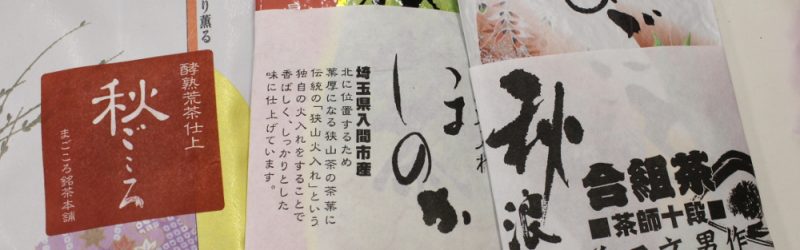 り薫る
酵熟荒茶仕上
秋ごころ
まごころ銘茶本舗
ほのか
埼玉県入間市産
北に位置するため
葉厚になる狭山茶の茶葉に
伝統の「狭山火入れ」という
独自の火入れをすることで
香ばしく、しっかりとした
味に仕上げています。
秋浪
合組茶
■茶師十段■
作